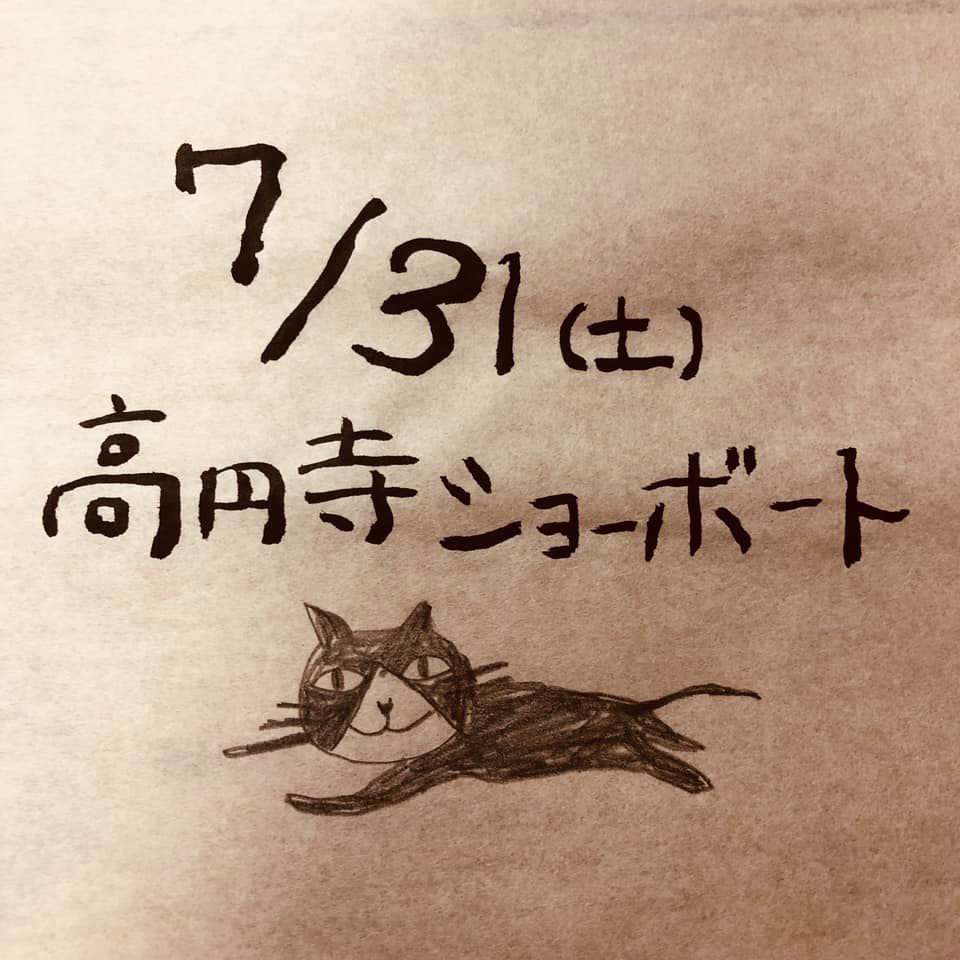 7/31(土)
高円寺ショーボート